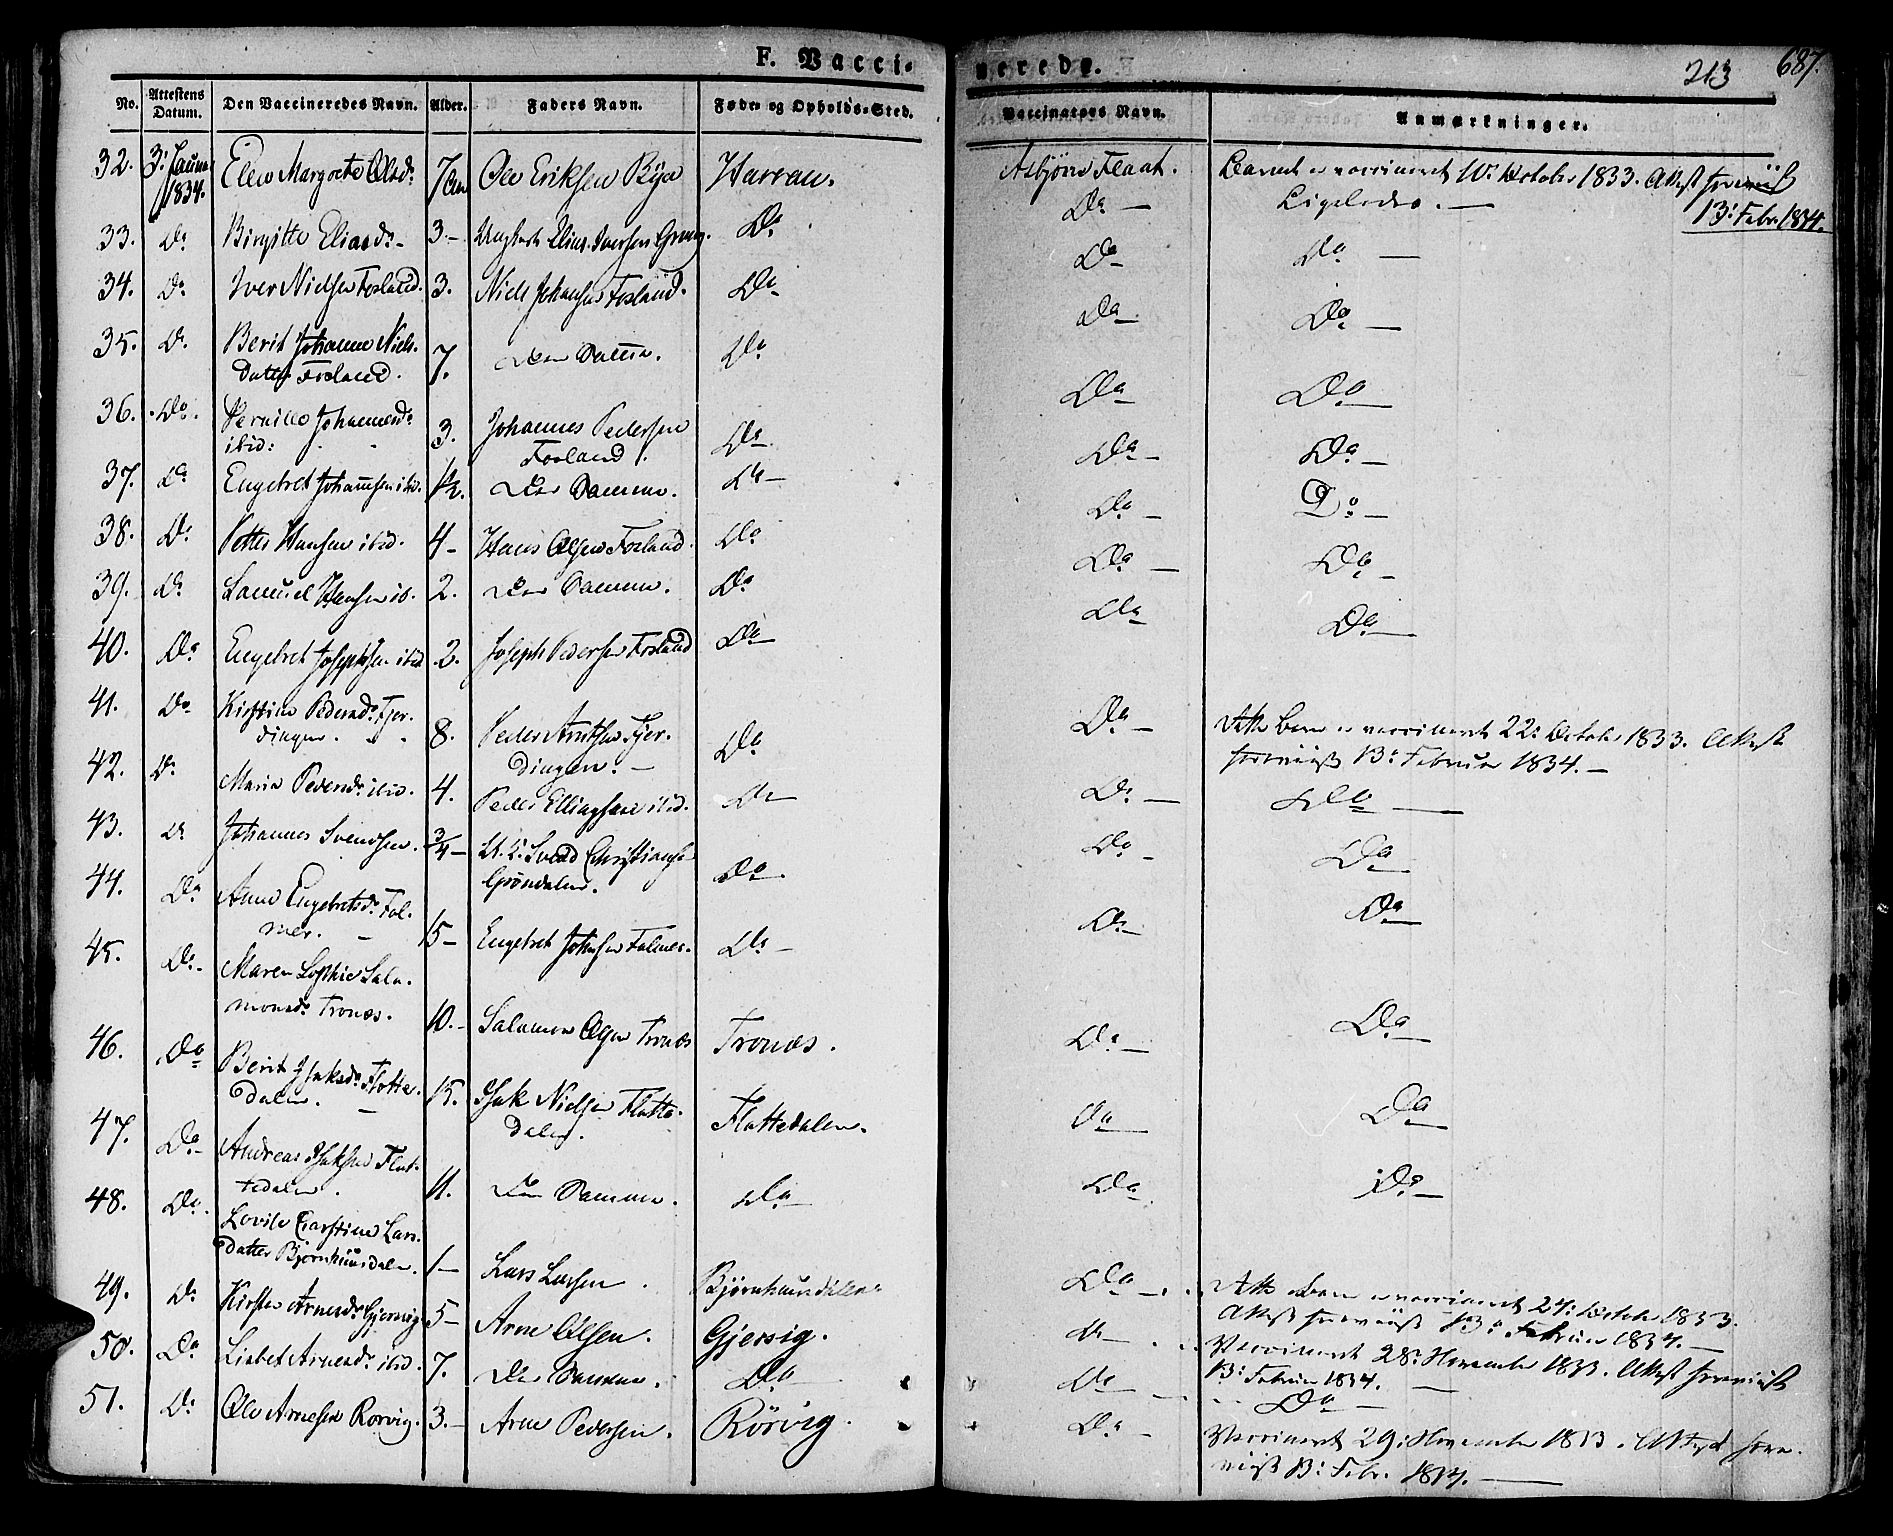 F. Vaccinerede.
213
687.
No. Attestens Datum. Den Vaccineredes Navn. Alder. Faders Navn. Føde- og Opholds-Sted. Vaccinateurs Navn. Anmærkninger.
32. 3: 1834. Elen Margrete Olsd: 7 Ole Eriksen Harran. Asbjörn Flaat. Barnet er vaccineret 10: October 1833. Attest foreviist
13: Febr. 1834.
33. Do Birgitte Eliasd: 3.- Elias Iversen Do Do - Ligeledes. -
34. Do Iver Nielsen Fosland. 3. Niels Johansen Fosland. Do Do - Do -
35. Do Berit Johanna Niels-
datter Fosland. 7. Den Samme. Do Do - Do -
36. Do Pernille Johannesd:
ibid: 3. Johannes Pedersen
Fosland. Do Do - Do -
37. Do Engebret Johannsen ibid. 1/2. Den Samme. Do - Do - Do -
38. Do Petter Hansen ibid. 4 - Hans Olsen Fosland. Do Do - Do -
39. Do Samuel Hansen ib. 2. Den Samme. Do Do - Do -
40. Do Engebret Josephsen ibid 2. Joseph Pedersen Fosland Do Do Do -
41. Do Kirstine Pedersd: Fjer-
dingen. 8. Peder Arntsen Fjer-
dingen. - Do Do - Dette Barn er vaccineret 22: October 1833. Attest
foreviist 13: Februar 1834. -
42. Do Maria Pedersd: ibid. 4. Peder Ellingsen ibid. Do Do - Do -
43. Do Johannes Svendsen. 3/4 - Svend Christiansen
Gröndalen. Do Do - Do
44. Do Anne Engebretsd: Fal-
mer. - 15 - Engebret Johnsen Falmer. Do - Do - Do -
45. Do Maren Sophie Salo-
monsd: Tronæs. 10. - Salomon Olsen Tronæs Tronæs. Do - Do -
46. Do Berit Isaksd: Flatte-
dalen. - 15. Isak Nielsen Flatte-
dalen. Flattedalen. Do Do -
47. Do Andreas Isaksen Flat-
tedalen. 11. Den Samme. Do Do Do -
48. Do Lovise Carstine Lars-
datter Bjørnhuusdalen. 1 - Lars Larsen. Bjørnhuusdalen. Do - Dette Barn er vaccineret 24: October 1833.
Attest foreviist 13: Februar 1834. -
49. Do Kirsten Arnesd: Gjersvig 5 - Arne Olsen. Gjersvig. Do - Vaccineret 28: November 1833. Attest foreviist
13: Februar 1834. -
50. Do Lisbet Arnesd: ibid. 7. Den Samme. Do Do - Do -
51. Do Ole Arnesen Rørvig. 3. - Arne Pedersen. Rörvig. Do - Vaccineret 29: November 1833. Attest fore-
viist 13: Febr. 1834. -